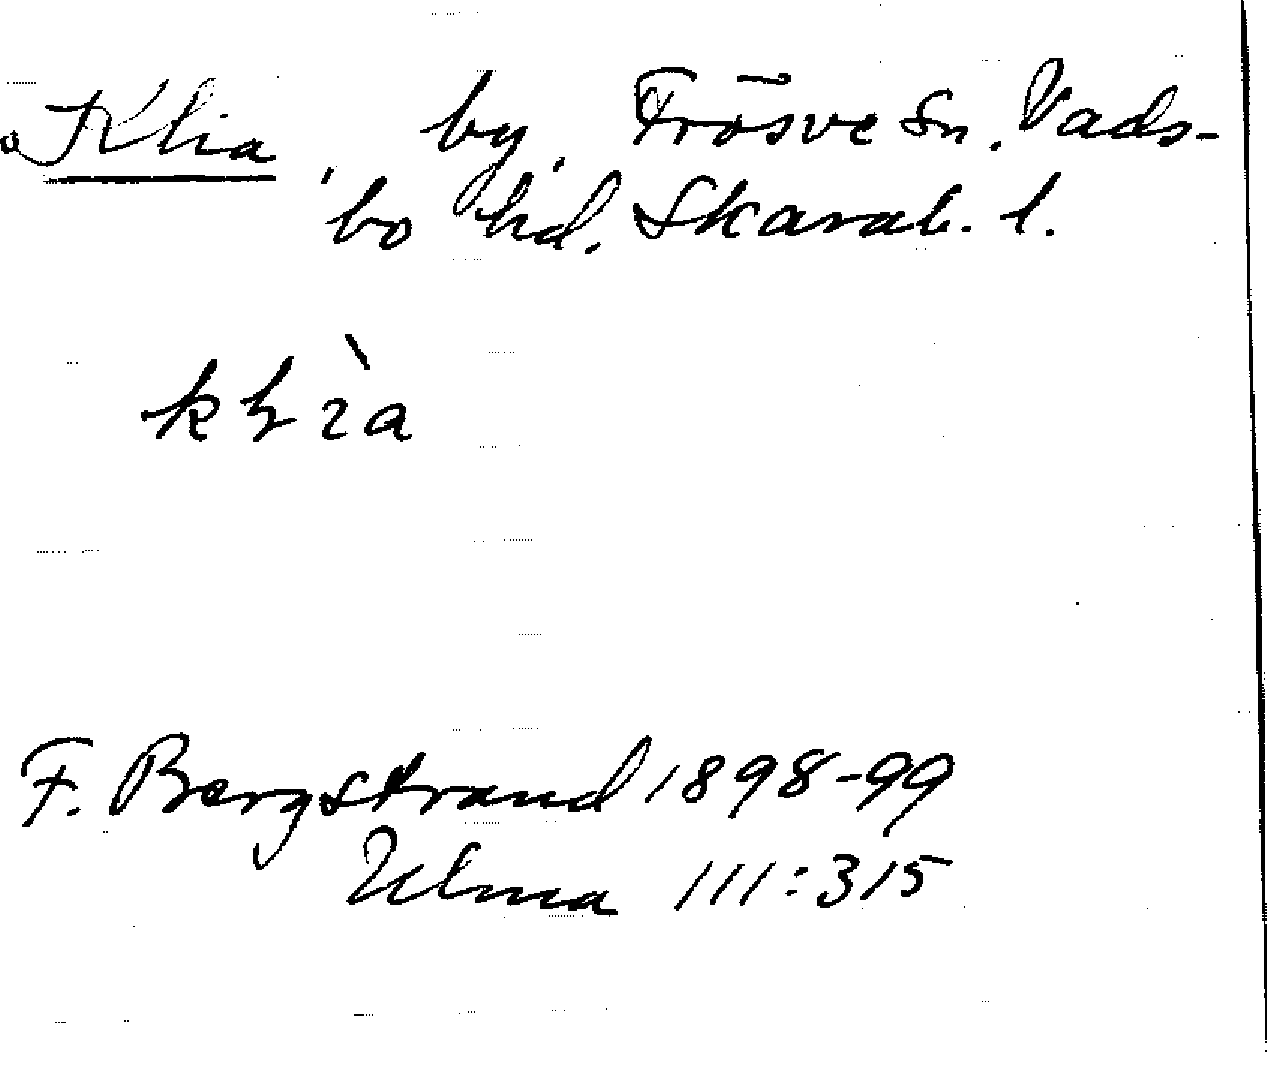 Klia, by, Frösve sn. Vads-
bo hd. Skarab. l.
F. Bergstrand 1898-99
Ulma 111:315